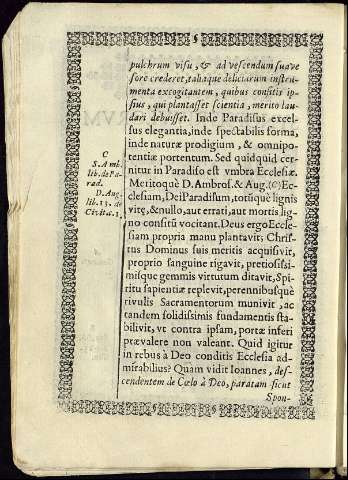 pulchrum visu, & ad vescendum suave
fore crederet, taliaque deliciarum instru-
menta excogitantem, quibus consitis ip-
sius, qui plantasset scientia, merito lau-
dari debuisset. Inde Paradisus excel-
sus elegantia, inde spectabilis forma,
inde naturæ prodigium, & omnipo-
tentiæ portentum. Sed quidquid cer-
nitur in Paradiso est vmbra Ecclesiæ.
Meritoquè D. Ambros. & Aug. (C) Ec-
clesiam, Dei Paradisum, totiusque lignis
vitę, & nullo, aut errati, aut mortis lig-
no consitū vocitant. Deus ergo Eccle-
siam propria manu plantavit; Chris-
tus Dominus suis meritis acquisivit,
proprio sanguine rigavit, pretiosissi-
misque gemmis virtutum ditavit, Spi-
ritu sapientiæ replevit, perennibusque
rivulis Sacramentorum munivit, ac
tandem solidissimis fundamentis sta-
bilivit, vt contra ipsam, portæ inferi
prævalere non valeant. Quid igitur
in rebus à Deo conditis Ecclesia ad-
mirabilius? Quam vidit Ioannes, des-
cendentem de Cœlo à Deo, paratam sicut
Spon-
C
S. Am
lib. de Pa-
rad.
D. Aug.
lib. 13. de
Civita.